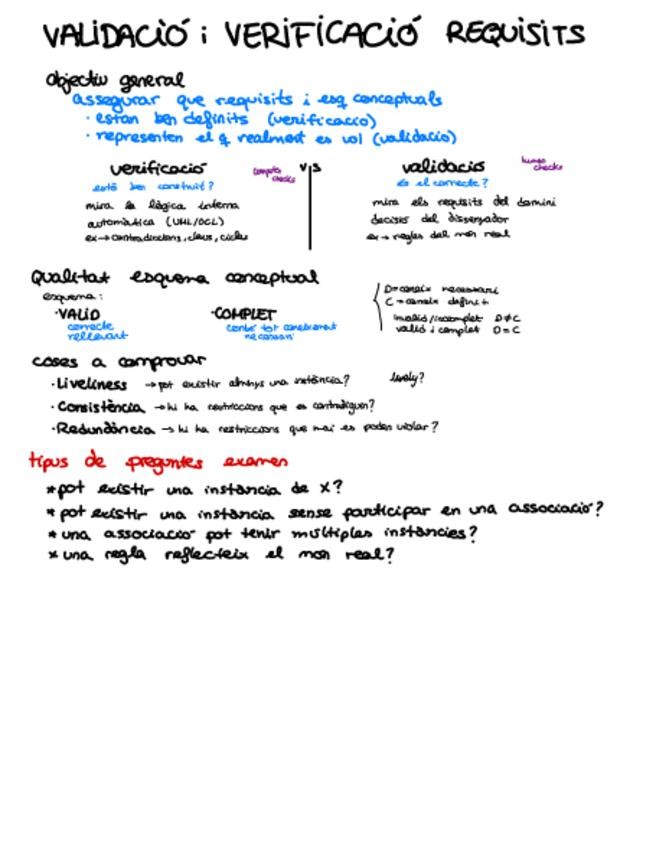 VALIDACIÓ i VERIFICACIÓ REQUISITS
objectiu general
assegurar que requisits i esq conceptuals
· estan ben definits (verificacio)
· representen el q realment es vol (validacio)
verificació
computer checks
v|s
validacio
human checks
està ben construit?
és el correcte?
mira la lògica interna
mira els requisits del domini
automàtica (UML/OCL)
decisio del dissenyador
ex→contradiccions, claus, cicles
ex→regles del mon real
Qualitat esquema conceptual
esquema:
·VALID
correcte
rellevant
·COMPLET
conté tot coneixement
necessari
D=coneix necessari
C=coneix definit
invalid/incomplet D≠C
valid i complet D=C
coses a comprovar
·Liveliness →pot existir almenys una instància? lively?
·Consistència →hi ha restriccions que es contradiguen?
·Redundància →hi ha restriccions que mai es poden violar?
tipus de preguntes examen
*pot existir una instancia de X?
*pot existir una instancia sense participar en una associació?
*una associació pot tenir multiples instàncies?
*una regla reflecteix el mon real?